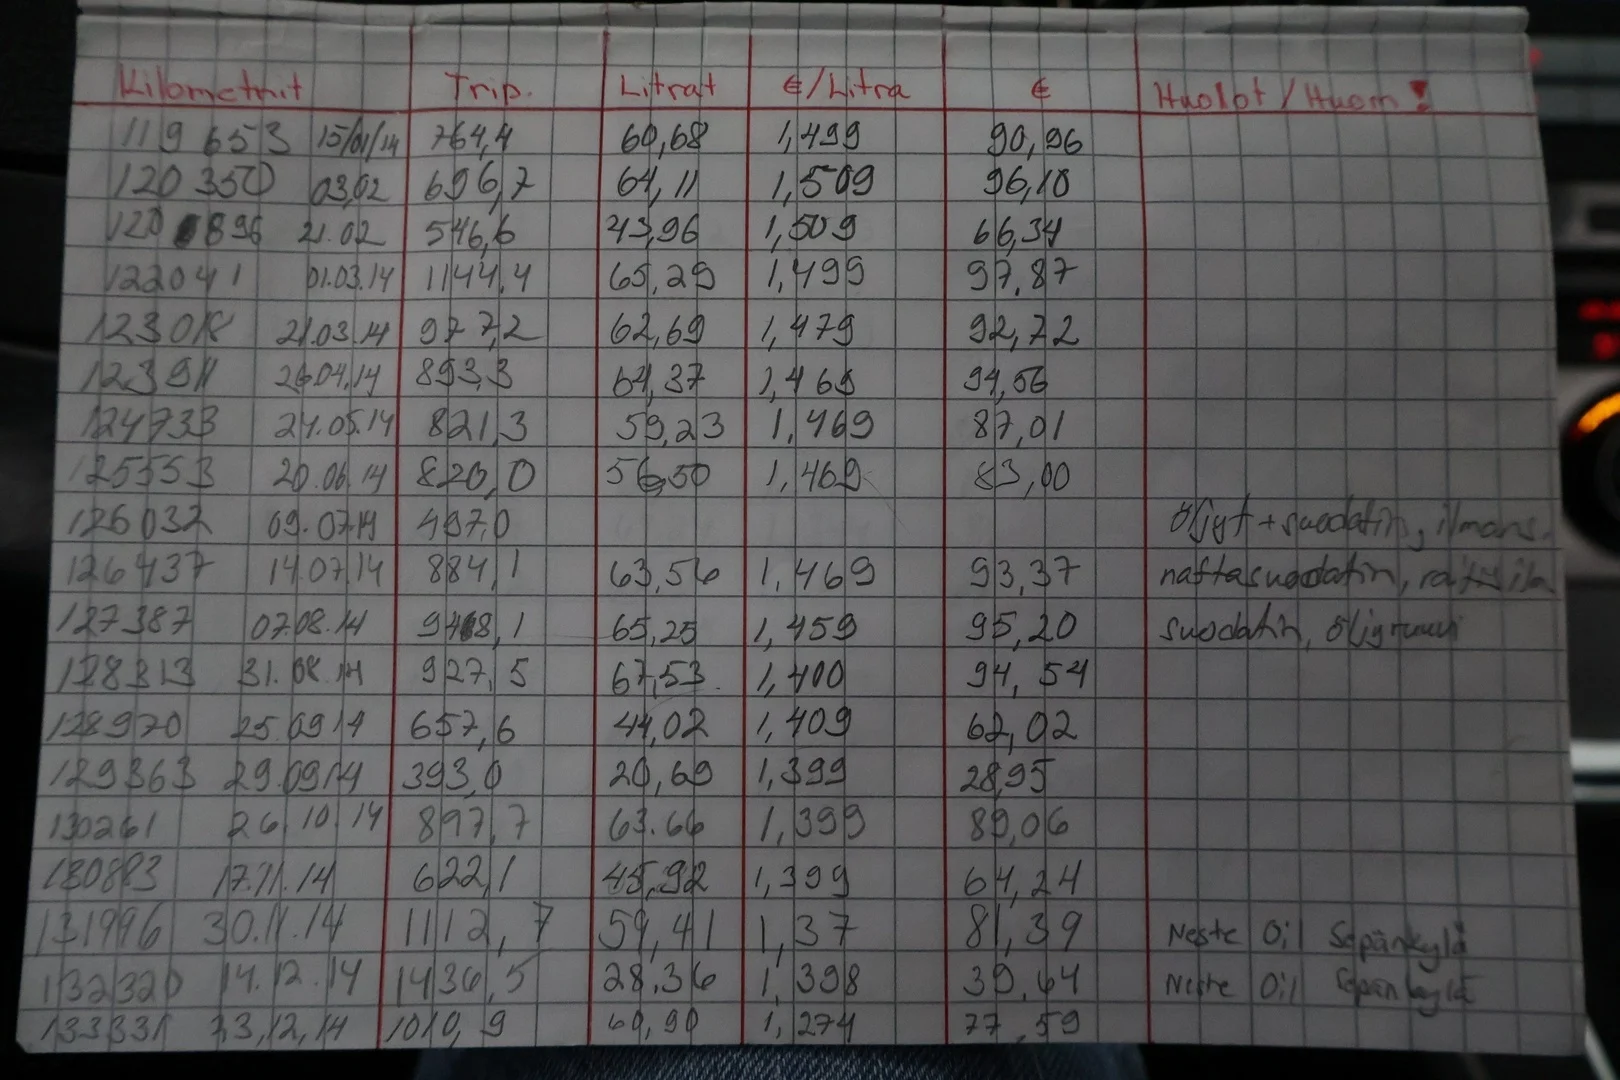 Kilometrit Trip. Litrat €/Litra € Huolot/Huom!
119 653 15/01/14 764,4 60,68 1,499 90,96
120 350 03,02 696,7 64,11 1,509 96,10
120 896 21.02 546,6 43,96 1,509 66,34
122041 01.03.14 1144,4 65,29 1,499 97,87
123018 21.03.14 977,2 62,69 1,479 92,72
123911 26.04.14 893,3 64,37 1,469 94,56
124733 24.05.14 821,3 59,23 1,469 87,01
125553 20.06.14 820,0 56,50 1,469 83,00
126032 09.07.14 497,0 öljyt + suodatin, ilmans.
126437 14.07.14 884,1 63,56 1,469 93,37 naftasuodatin,
127387 07.08.14 948,1 65,25 1,459 95,20 suodatin, öljyruuvi
128313 31.08.14 927,5 67,53 1,400 94,54
128970 25.09.14 657,6 44,02 1,409 62,02
129363 29.09.14 393,0 20,69 1,399 28,95
130261 26.10.14 897,7 63.66 1,399 89,06
130883 17.11.14 622,1 45,92 1,399 64,24
131996 30.11.14 1112,7 59,41 1,37 81,39 Neste Oil Sepänkylä
132320 14.12.14 1436,5 28,36 1,398 39,64 Neste Oil Sepänkylä
133331 23,12,14 1010,9 60,90 1,274 77,59